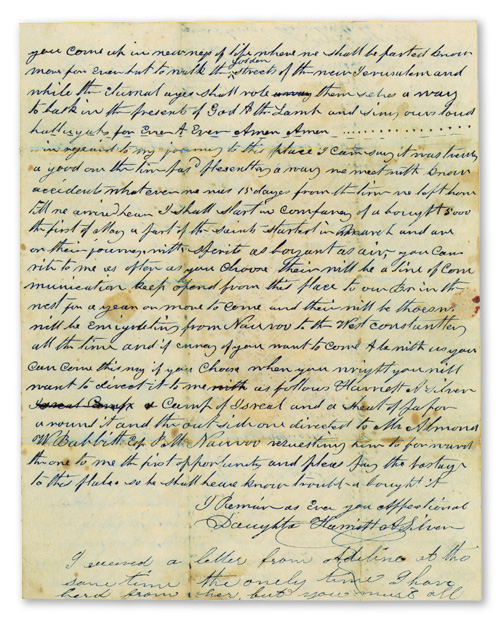 you come up in newness of life where we shall be parted know
more for Ever but to walk the golden streets of the new Jerusalem and
while the Eturnal ages shall role away them selvs a way
to bask in the present of God & th Lamb and sing our loud
hallaluyahs for Ever & Ever Amen Amen
in regard to my journey to this place I can say it was truly
a good on the time pasd plesently a way we meet with know
accident what ever we was 15 days from the time we left home
till we arived hear I shall start in company of a bought 5000
the first of May a part of the Saints started in March and are
on their journey with spirits as boyant as air, you can
rite to me as often as you choose their will be a line of com
munication keep opend from this place to our Br in the
west for a year or more to come and their will be thousens
will be emigrateing from Nauvoo to the West constantley
all the time and if enney of you want to come A long with us you
can come this way if you choose when you wright you will
want to direct it to me as follows Harriett A Silver
Camp of Isreal and a sheat of papor
around it and the out side one directed to Mr Almond
W Babbitt Esq P M Nauvoo requesting him to forward
the one to me the first opportunity and pleas pay the postage
to this place so he shall heave know trouble a bought it
I Remain as Ever you Affectional
Daughter Harriett A Silver
I receved a letter from Adeline at the
same time the onely time I have
herd from her, but you must all